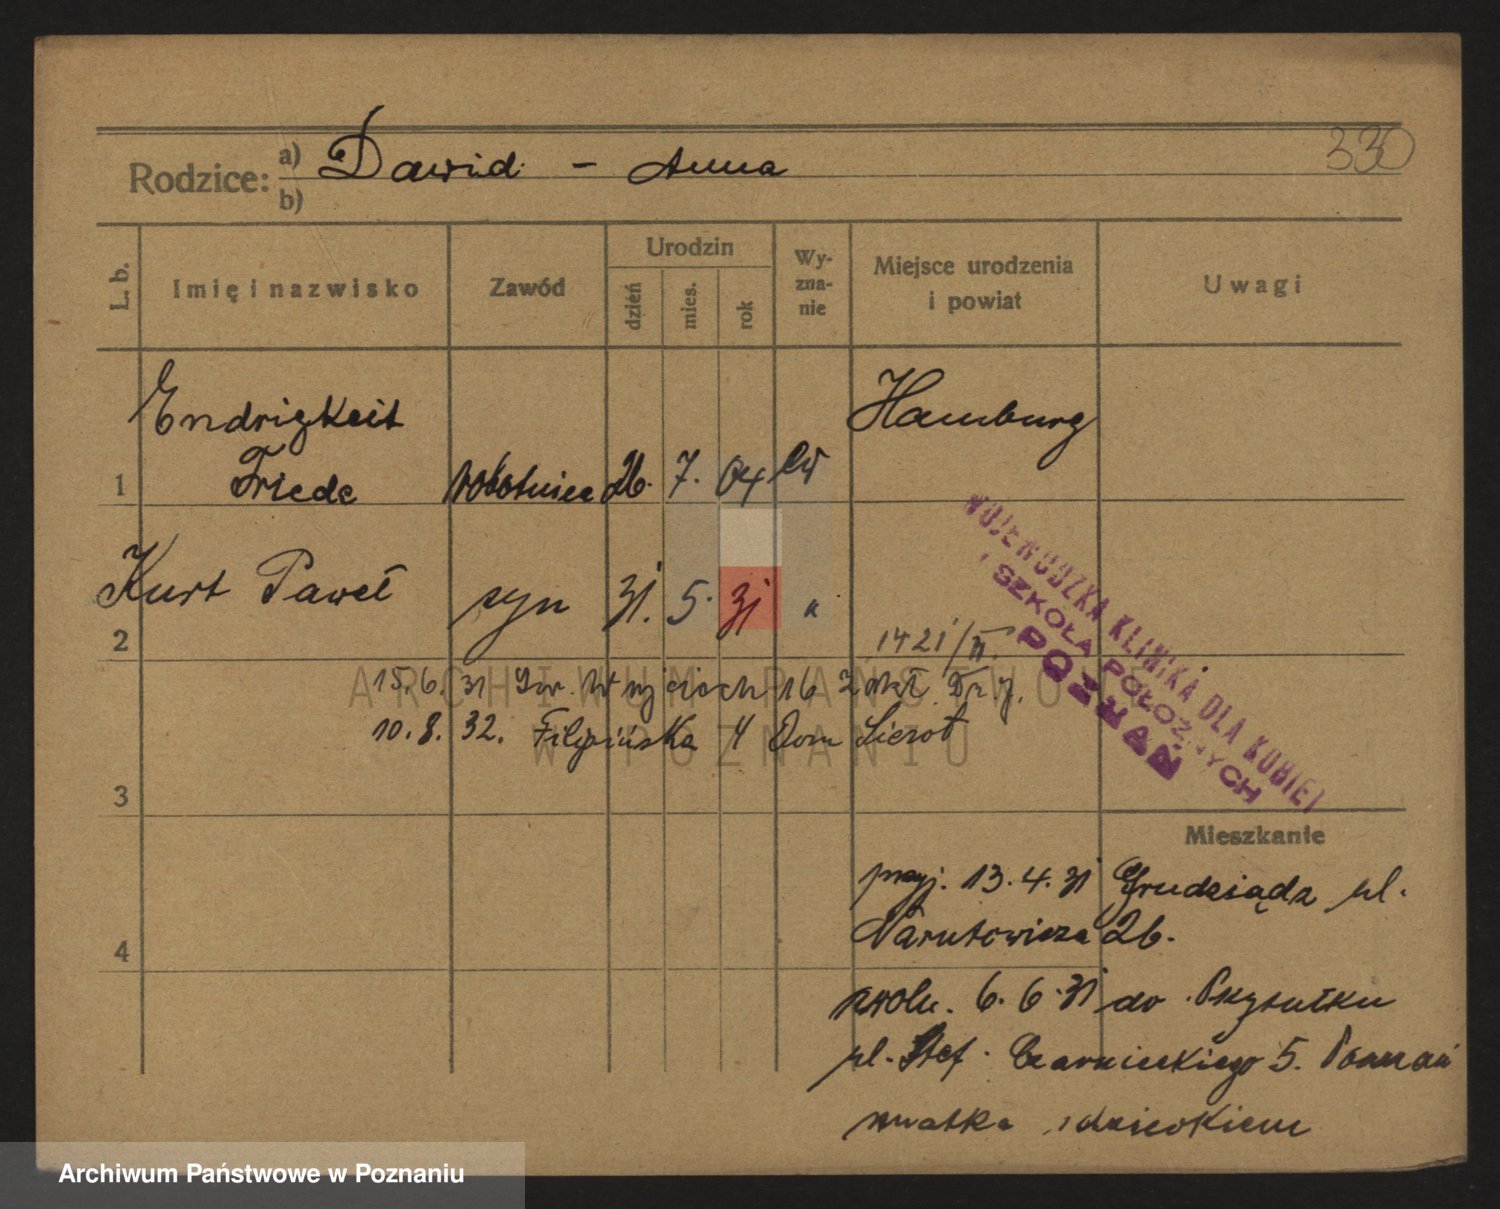 330
Rodzice: a) Dawid - Anna
b)
L. b. Imię i nazwisko Zawód Urodzin dzień mies. rok Wyznanie Miejsce urodzenia i powiat Uwagi
Endrigkeit Hamburg
1 Friede robotnica 26. 7. 04 ew
Kurt Paweł syn 31. 5. 31 "
2 1421/II.
15.6.31 16 Zakł.
10.8.32. Filipińska 4 Dom Sierot
WOJEWÓDZKA KLINIKA DLA KOBIET
I SZKOŁA POŁOŻNYCH
POZNAŃ
ARCHIWUM PAŃSTWOWE
W POZNANIU
3
Mieszkanie
przyj. 13.4.31 Grudziądz ul.
Narutowicza 26.
4
zwoln. 6.6.31 do Przytułku
ul. Stef. Czarnieckiego 5. Poznań
matka i dzieckiem
Archiwum Państwowe w Poznaniu